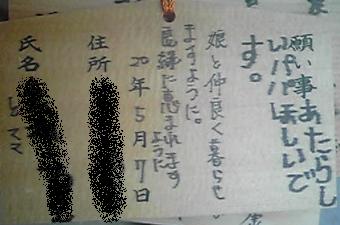 願い事あたらし
いパパほしいで
す。
娘と仲良く暮らせ
ますように。
良縁に恵まれます
ように
20年5月7日
住所
氏名
とママ